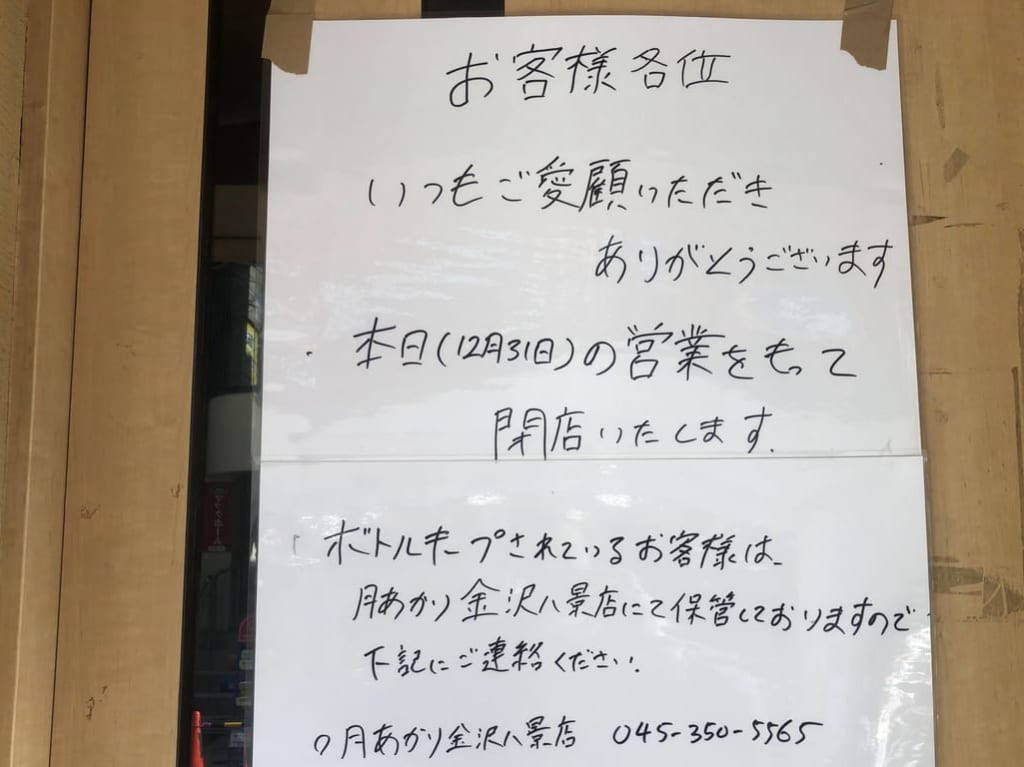 お客様各位
いつもご愛顧いただき
ありがとうございます
本日(12月31日)の営業をもって
閉店いたします.
ボトルキープされているお客様は、
月あかり金沢八景店にて保管しておりますので
下記にご連絡ください.
月あかり金沢八景店 045-350-5565